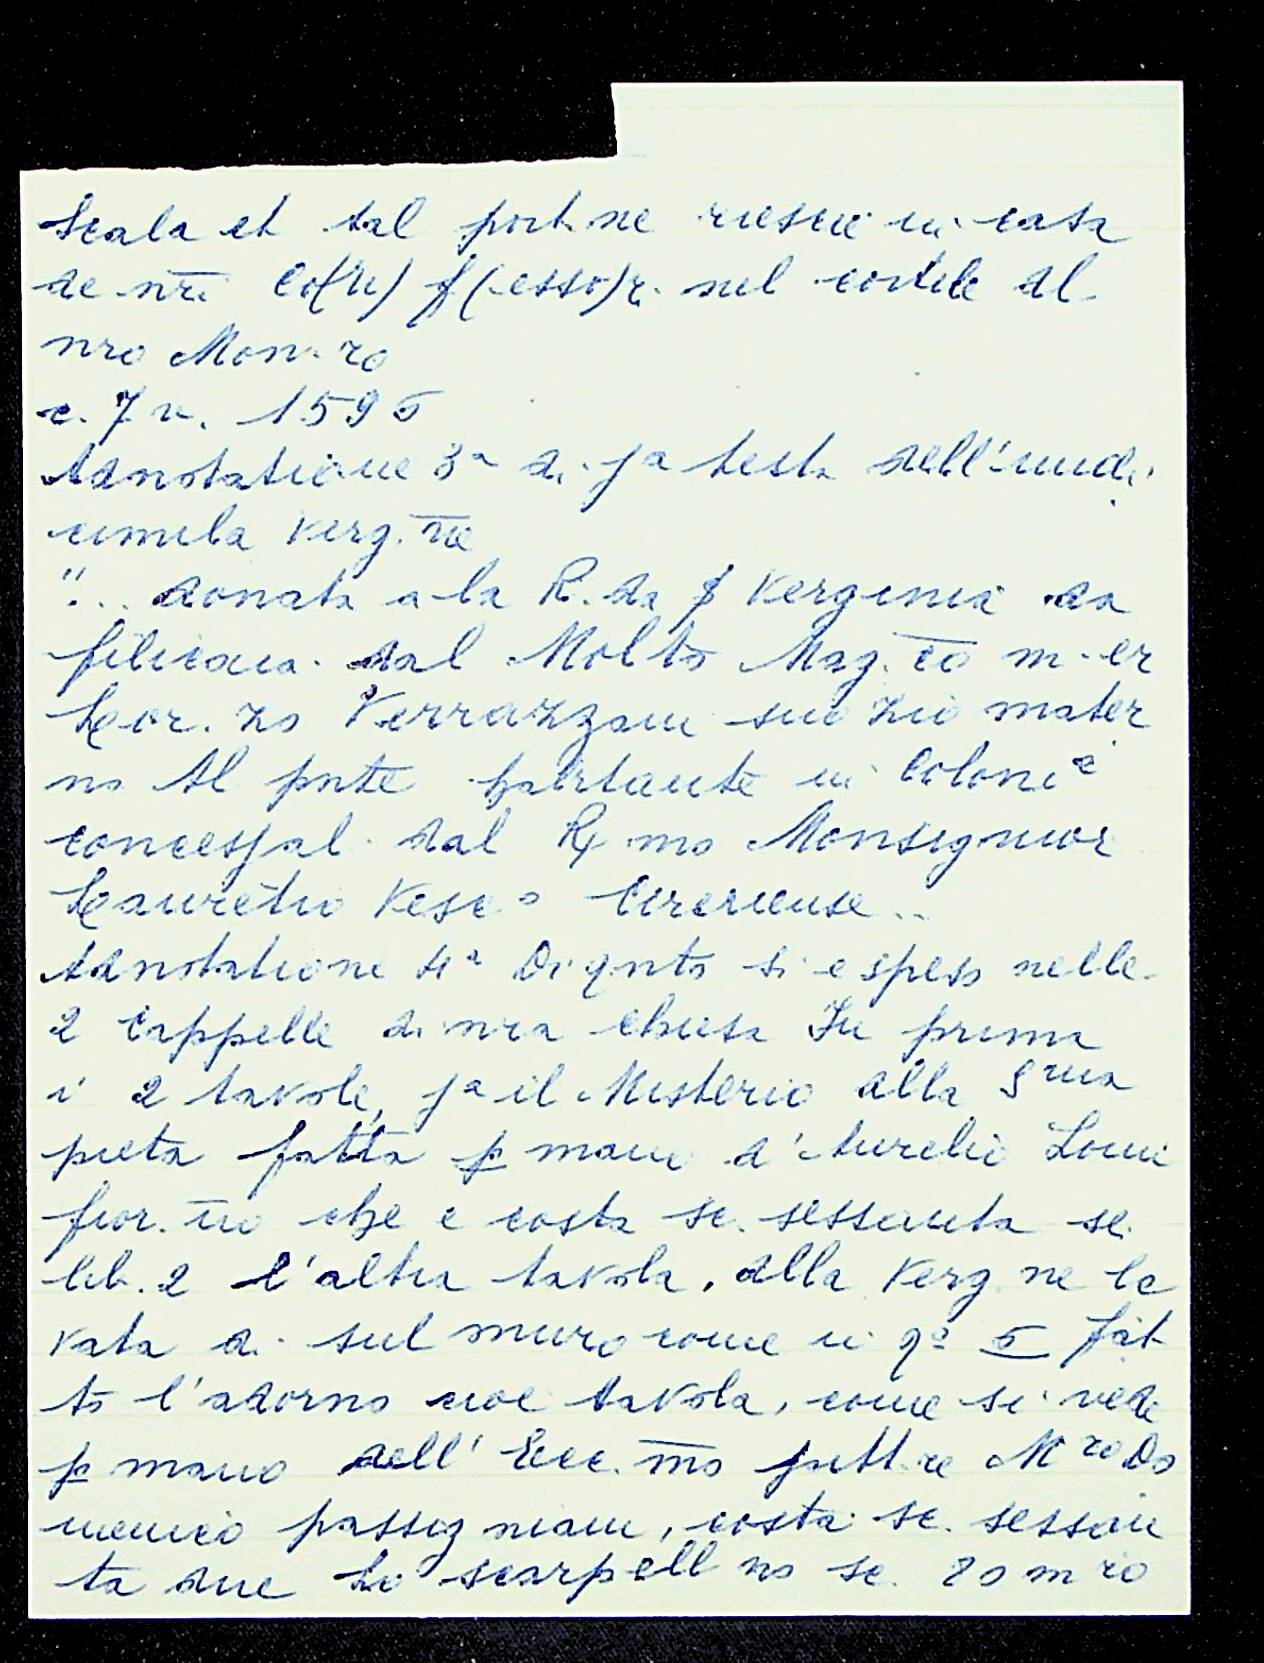 Scala et tal port.ne riesce in casa
de nri Co(n) f(esso)r. nel cortile del
nro Mon. ro
c. 7 v. 1595
Adnotatione 3a di ja testa dell'undi
cimila Verg. ne
"... donata a la R. da S Verginia da
filicaia dal Molto Mag. co m-er
Lor. zo Verrazzani suo zio mater
no Al pnte habitante in Coloni a
concessal dal R mo Monsignior
Lauretio Vesc o
Adnotatione 4a Di qnto si e speso nelle
2 Cappelle di nra chiesa In prima
i 2 tavole, ja il Misterio della S ma
pieta fatta p mano d'Aurelio Lomi
fior. no che e costa sc. sessanta se
lib. 2 l'altra tavola, della Verg ne le
vata di sul muro come in qo 5 fat
to l'adorno cioe tavola, come si vede
p mano dell' Ecc. mo pitt.re M ro Do
menico passigniani, costa sc. sessan
ta due Lo scarpell no sc. 20 m ro